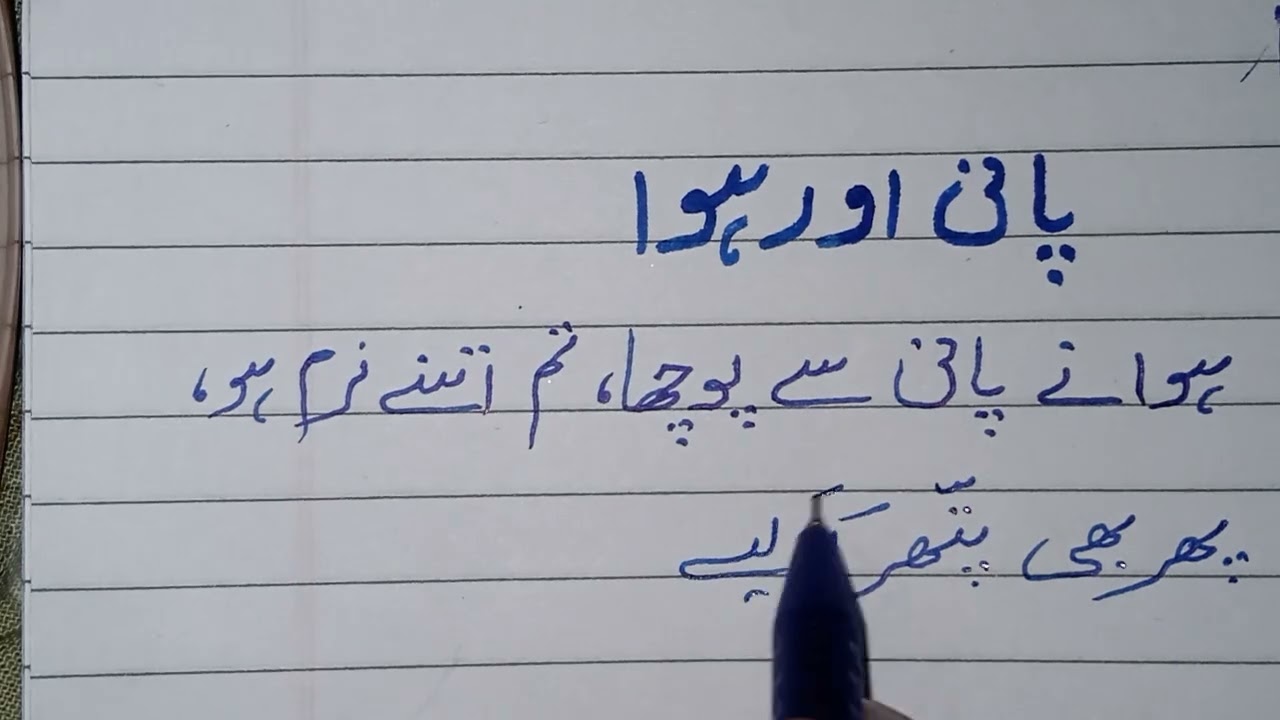 پانی اور ہوا
ہوا نے پانی سے پوچھا، تم اتنے نرم ہو،
پھر بھی پتّھر کیسے